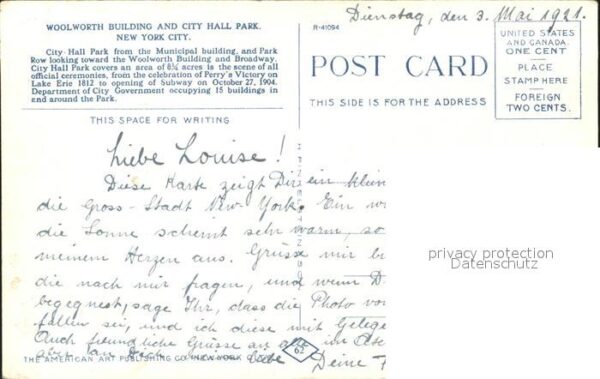 Dienstag, den 3. Mai 1921.
WOOLWORTH BUILDING AND CITY HALL PARK.
NEW YORK CITY.
City Hall Park from the Municipal building, and Park
Row looking toward the Woolworth Building and Broadway.
City Hall Park covers an area of 8¼ acres is the scene of all
official ceremonies, from the celebration of Perry's Victory on
Lake Erie 1812 to opening of Subway on October 27, 1904.
Department of City Government occupying 15 buildings in
and around the Park.
R-41094
POST CARD
THIS SIDE IS FOR THE ADDRESS
UNITED STATES
AND CANADA
ONE CENT
PLACE
STAMP HERE
FOREIGN
TWO CENTS.
THIS SPACE FOR WRITING
Liebe Louise!
Diese Karte zeigt Dir ein klein
die Gross-Stadt New-York. Ein
die Sonne scheint sehr warm, so
meinem Herzen aus. Grüsse mir
die nach mir fragen, und wenn D
begegnest, sage Ihr, dass die Photo
fallen sei, und ich diese mit Gelege
Auch freundliche Grüsse an alle
aber an Dich
Deine
THE AMERICAN ART PUBLISHING CO NEW YORK CITY
62
privacy protection
Datenschutz